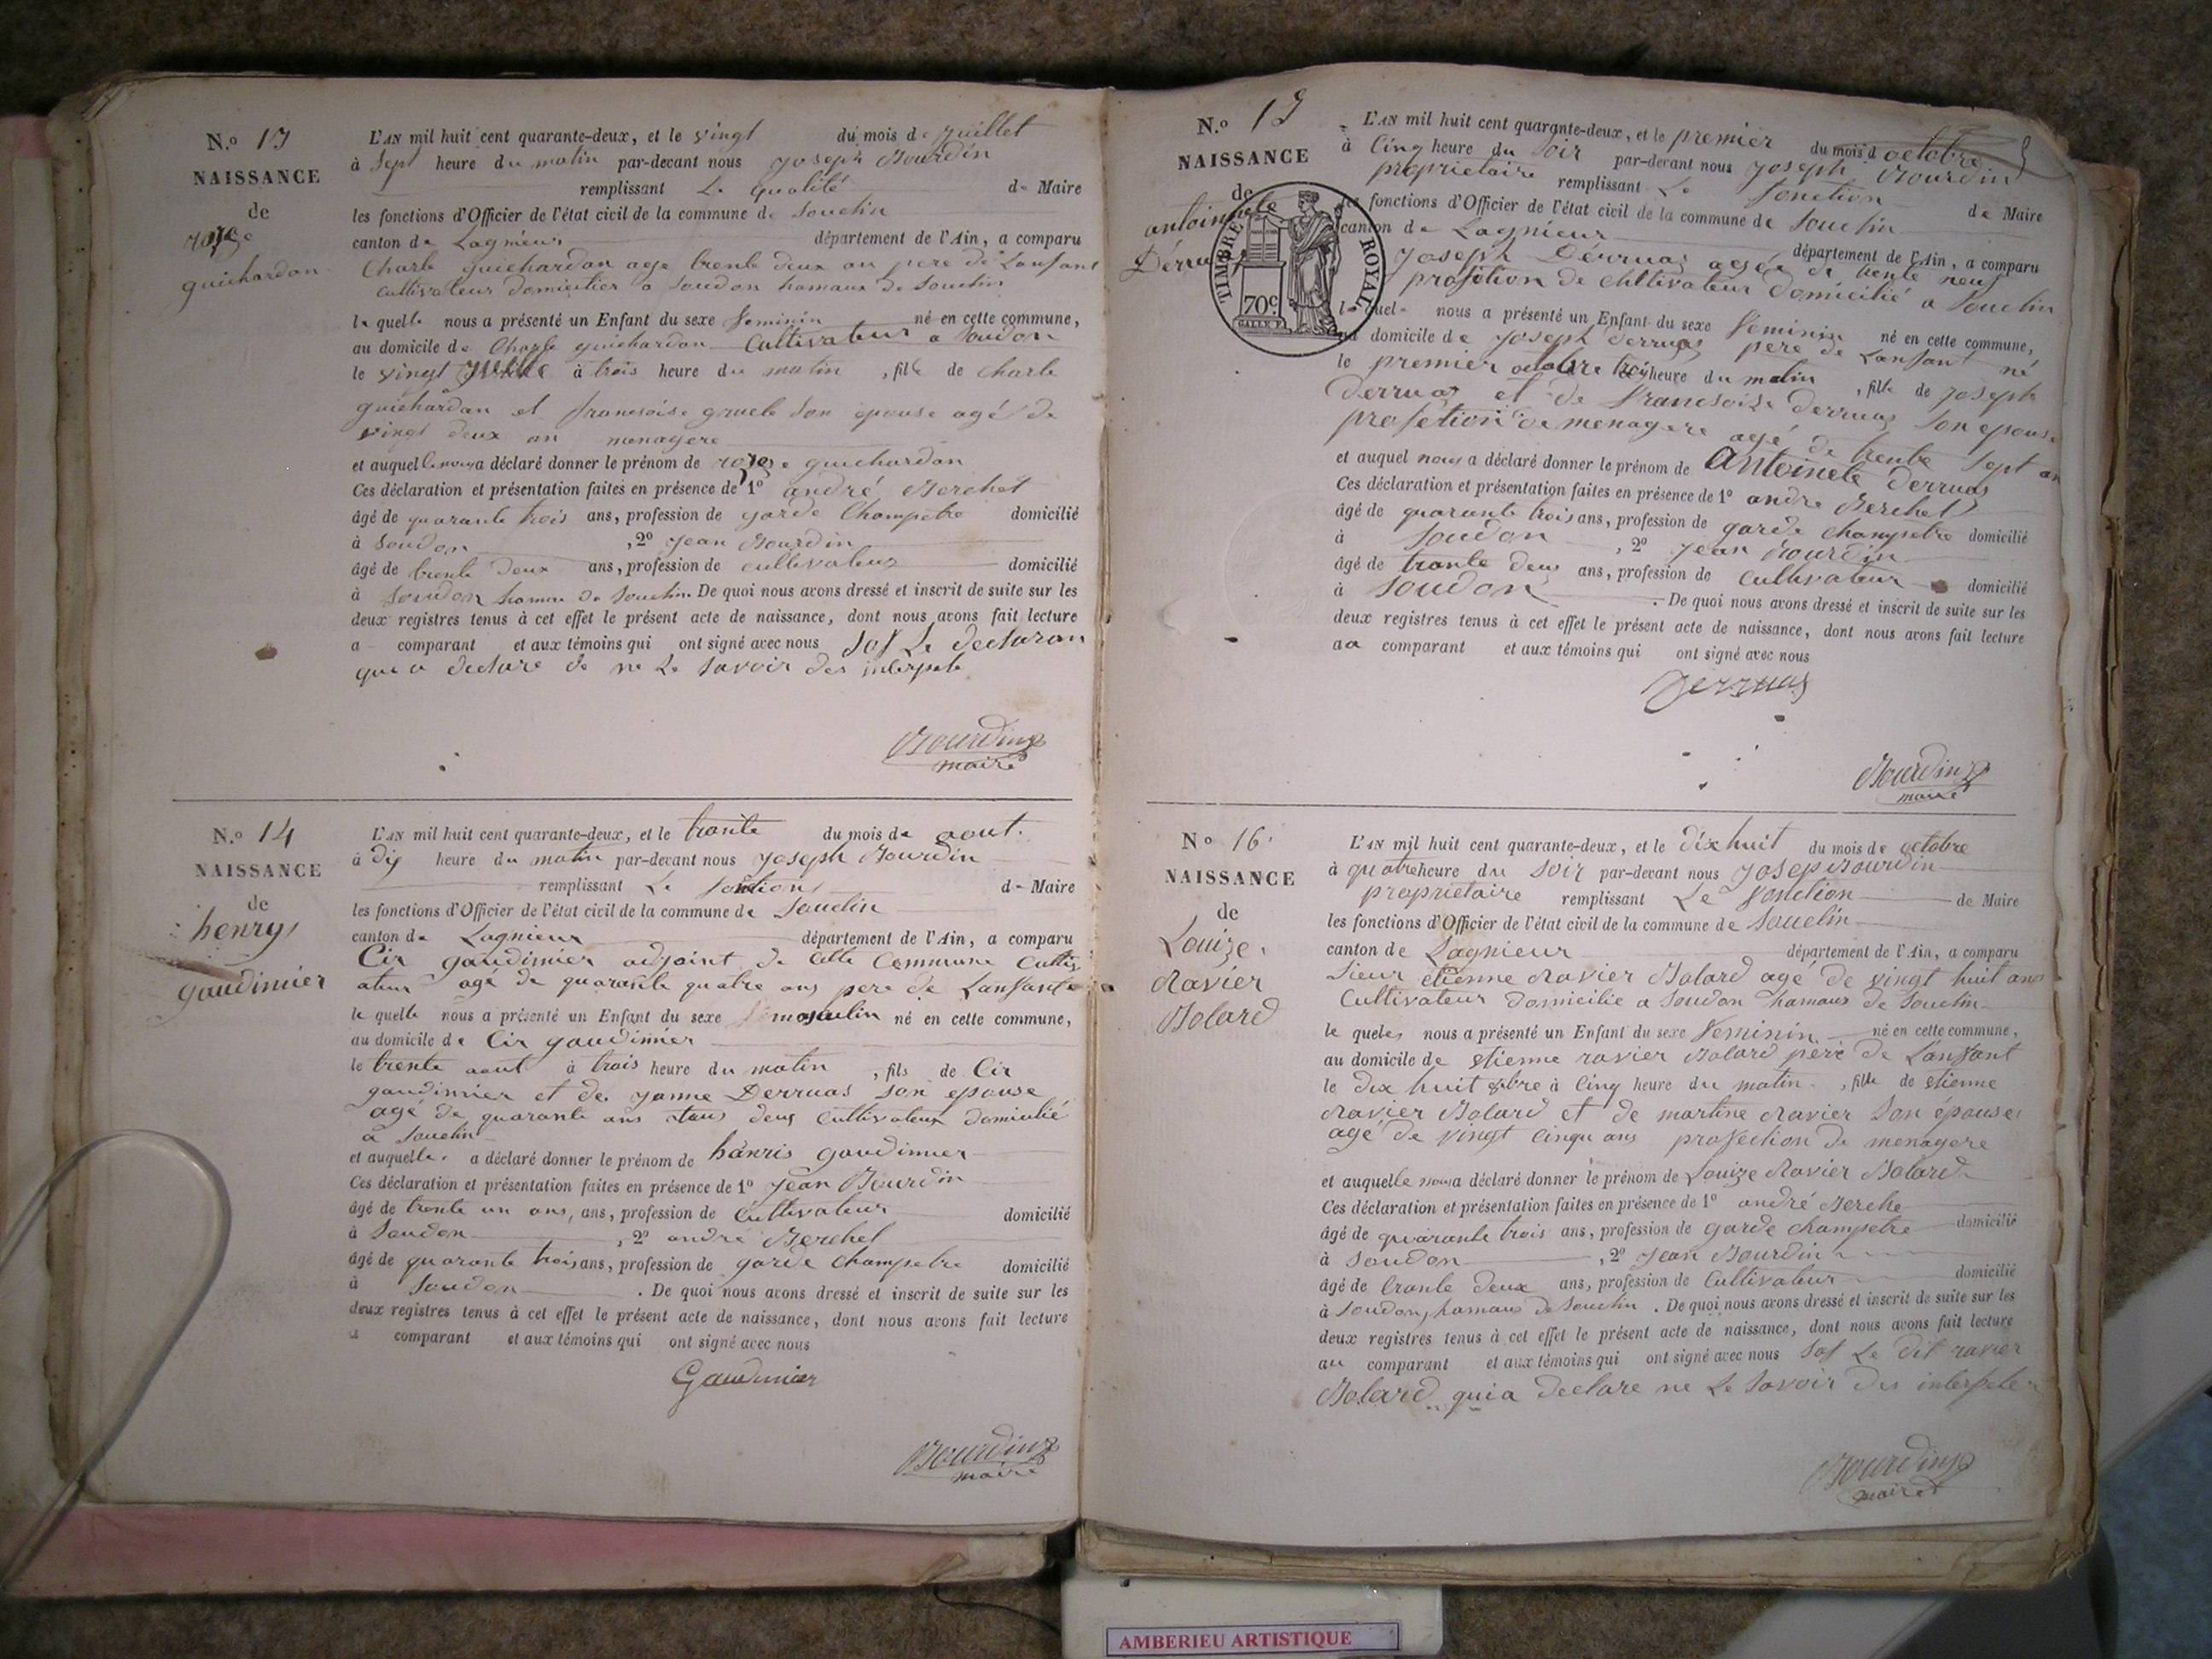 N.o 13
NAISSANCE
de
guichardon
L'AN mil huit cent quarante-deux, et le vingt du mois de Juillet
à Sept heure du matin par-devant nous joseph Bourdin
remplissant Le qualité de Maire
les fonctions d'Officier de l'état civil de la commune de Souclin
canton de Lagnieux département de l'Ain, a comparu
Charle guichardon age trente deux an pere de Lanfant
cultivateur domicilier a Soudon hamaux de Souclin
le quelle nous a présenté un Enfant du sexe feminin né en cette commune,
au domicile de Charle guichardon Cultivateur a Soudon
le vingt à trois heure du matin , fille de charle
guichardon et fransoise gruele Son epouse agé de
vingt deux an menagere
et auquel a déclaré donner le prénom de guichardon
Ces déclaration et présentation faites en présence de 1º andré Berchet
âgé de quarante trois ans, profession de garde Champetre domicilié
à Soudon , 2º jean Bourdin
âgé de trente Deux ans, profession de cultivateur domicilié
à Soudon de Souclin De quoi nous avons dressé et inscrit de suite sur les
deux registres tenus à cet effet le présent acte de naissance, dont nous avons fait lecture
a comparant et aux témoins qui ont signé avec nous Sof Le declaran
qui a declare de ne Le Savoir des interpele
Bourdin
maire
N.o 14
NAISSANCE
de
henry
gaudinier
L'AN mil huit cent quarante-deux, et le trante du mois de aout
à dix heure du matin par-devant nous joseph Bourdin
remplissant Le de Maire
les fonctions d'Officier de l'état civil de la commune de Souclin
canton de Lagnieux département de l'Ain, a comparu
Cir gaudinier adjoint de Cette Commune Cultiv
ateur agé de quarante quatre ans pere de Lanfant
le quelle nous a présenté un Enfant du sexe masculin né en cette commune,
au domicile de Cir gaudinier
le trente aout à trois heure du matin , fils de Cir
gaudinier et de janne Derruas Son epouse
agé de quarante ans tous deux Cultivateur domicilié
a Souclin
et auquelle a déclaré donner le prénom de hanris gaudinier
Ces déclaration et présentation faites en présence de 1º Jean Bourdin
âgé de trente un ans, ans, profession de Cultivateur domicilié
à Soudon , 2º andré Berchet
âgé de quarante trois ans, profession de garde Champetre domicilié
à Soudon . De quoi nous avons dressé et inscrit de suite sur les
deux registres tenus à cet effet le présent acte de naissance, dont nous avons fait lecture
a comparant et aux témoins qui ont signé avec nous
Gaudinier
Bourdin
maire
N.o 15
NAISSANCE
de
antoinete
Derruas
TIMBRE ROYAL
70c.
L'AN mil huit cent quarante-deux, et le premier du mois d octobre
à Cinq heure du Soir par-devant nous joseph Bourdin
proprietaire remplissant Le fonction de Maire
les fonctions d'Officier de l'état civil de la commune de Souclin
canton de Lagnieur département de l'Ain, a comparu
joseph Dérruas agée de trente neuf
profétion de Cultivateur domicilié a Souclin
le quel nous a présenté un Enfant du sexe féminin né en cette commune,
au domicile de joseph derruas pere de Lanfant né
le premier octobre trois heure du matin , fille de joseph
derruas et de francsoise derruas Son epouse
profétion de menagere agé de trente Sept an
et auquel nous a déclaré donner le prénom de Antoinete Derruas
Ces déclaration et présentation faites en présence de 1º andre Berchet
âgé de quarante trois ans, profession de garde Champetre domicilié
à Soudon , 2º jean Bourdin
âgé de trante deux ans, profession de Cultivateur domicilié
à Soudon . De quoi nous avons dressé et inscrit de suite sur les
deux registres tenus à cet effet le présent acte de naissance, dont nous avons fait lecture
au comparant et aux témoins qui ont signé avec nous
Derruas
Bourdin
maire
No 16
NAISSANCE
de
Louize
Ravier
Bolard
L'AN mil huit cent quarante-deux, et le dix huit du mois de octobre
à quatre heure du Soir par-devant nous joseph Bourdin
proprietaire remplissant Le fonction de Maire
les fonctions d'Officier de l'état civil de la commune de Souclin
canton de Lagnieur département de l'Ain, a comparu
Sieur etienne Ravier Bolard agé de vingt huit ans
Cultivateur domicilie a Soudon hamaux de Souclin
le queles nous a présenté un Enfant du sexe feminin né en cette commune,
au domicile de etienne ravier Bolard pere de Lanfant
le dix huit 8bre à Cinq heure du matin , fille de etienne
Ravier Bolard et de martine Ravier Son épouse
agé de vingt Cinqu ans profection de menagere
et auquelle nous a déclaré donner le prénom de Louize Ravier Bolard
Ces déclaration et présentation faites en présence de 1º andré Berche
âgé de quarante trois ans, profession de garde champetre domicilié
à Soudon , 2º Jean Bourdin
âgé de trante deux ans, profession de Cultivateur domicilié
à Soudon, hamaux de Souclin . De quoi nous avons dressé et inscrit de suite sur les
deux registres tenus à cet effet le présent acte de naissance, dont nous avons fait lecture
au comparant et aux témoins qui ont signé avec nous Sof Le dit ravier
Bolard qui a declare ne Le Savoir des interpele
Bourdin
maire
AMBERIEU ARTISTIQUE